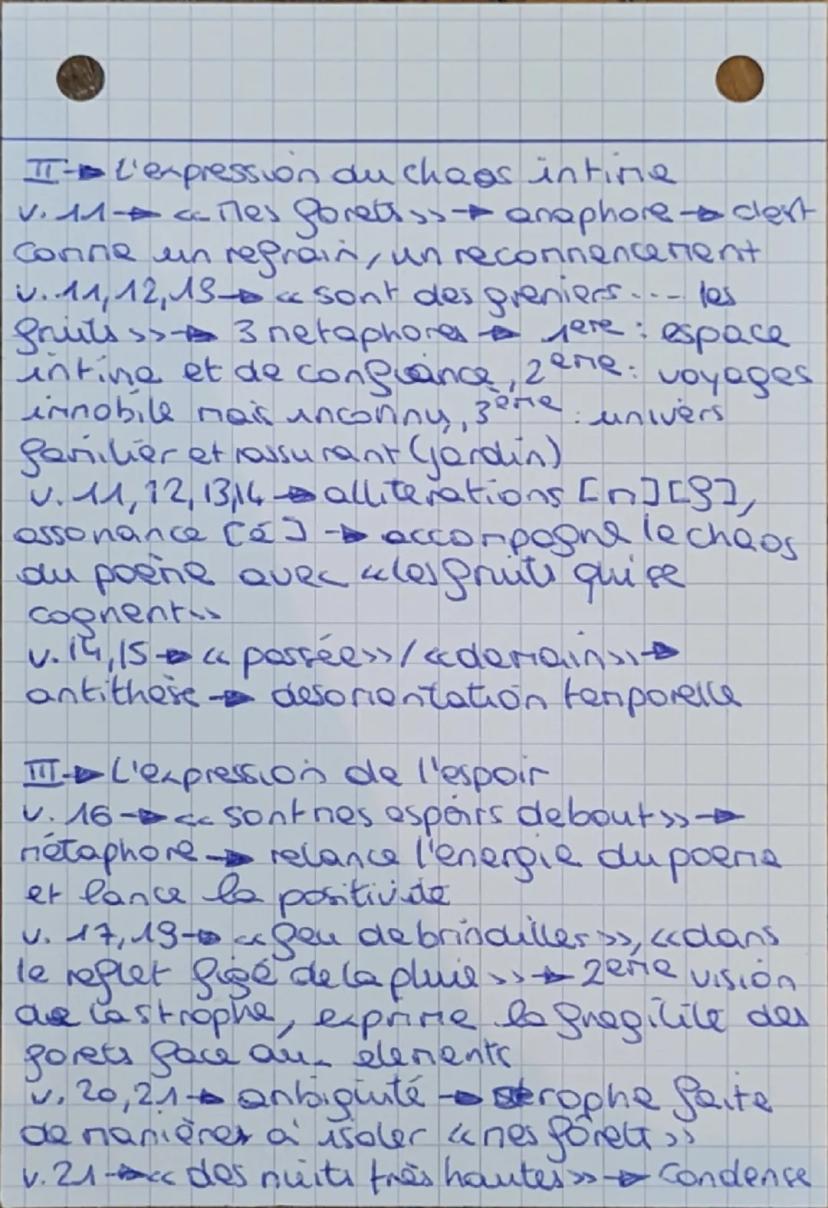 II → L'expression du chaos intime
v.11 → « Mes forets » → anaphore → c'est
comme un refrain, un recommencement
v.11,12,13 → « sont des greniers... les
fruits » → 3 metaphores → 1ere : espace
intime et de confiance, 2eme : voyages
immobile mais inconnu, 3eme : univers
familier et rassurant (jardin)
v.11,12,13,14 → alliterations [m][f],
assonance [é] → accompagne le chaos
du poème avec « les fruits qui se
cognent »
v.14,15 → « passée » / « demain » →
antithèse → desorientation temporelle
III → L'expression de l'espoir
v.16 → « sont mes espoirs debout » →
métaphore → relance l'energie du poeme
et lance la positivité
v.17,19 → « feu de brindilles », « dans
le reflet figé de la pluie » → 2eme vision
de la strophe, exprime la fragilité des
forets face aux elements
v.20,21 → ambiguïté → strophe faite
de manières à isoler « mes fôrets »
v.21 → « des nuits très hautes » → condence